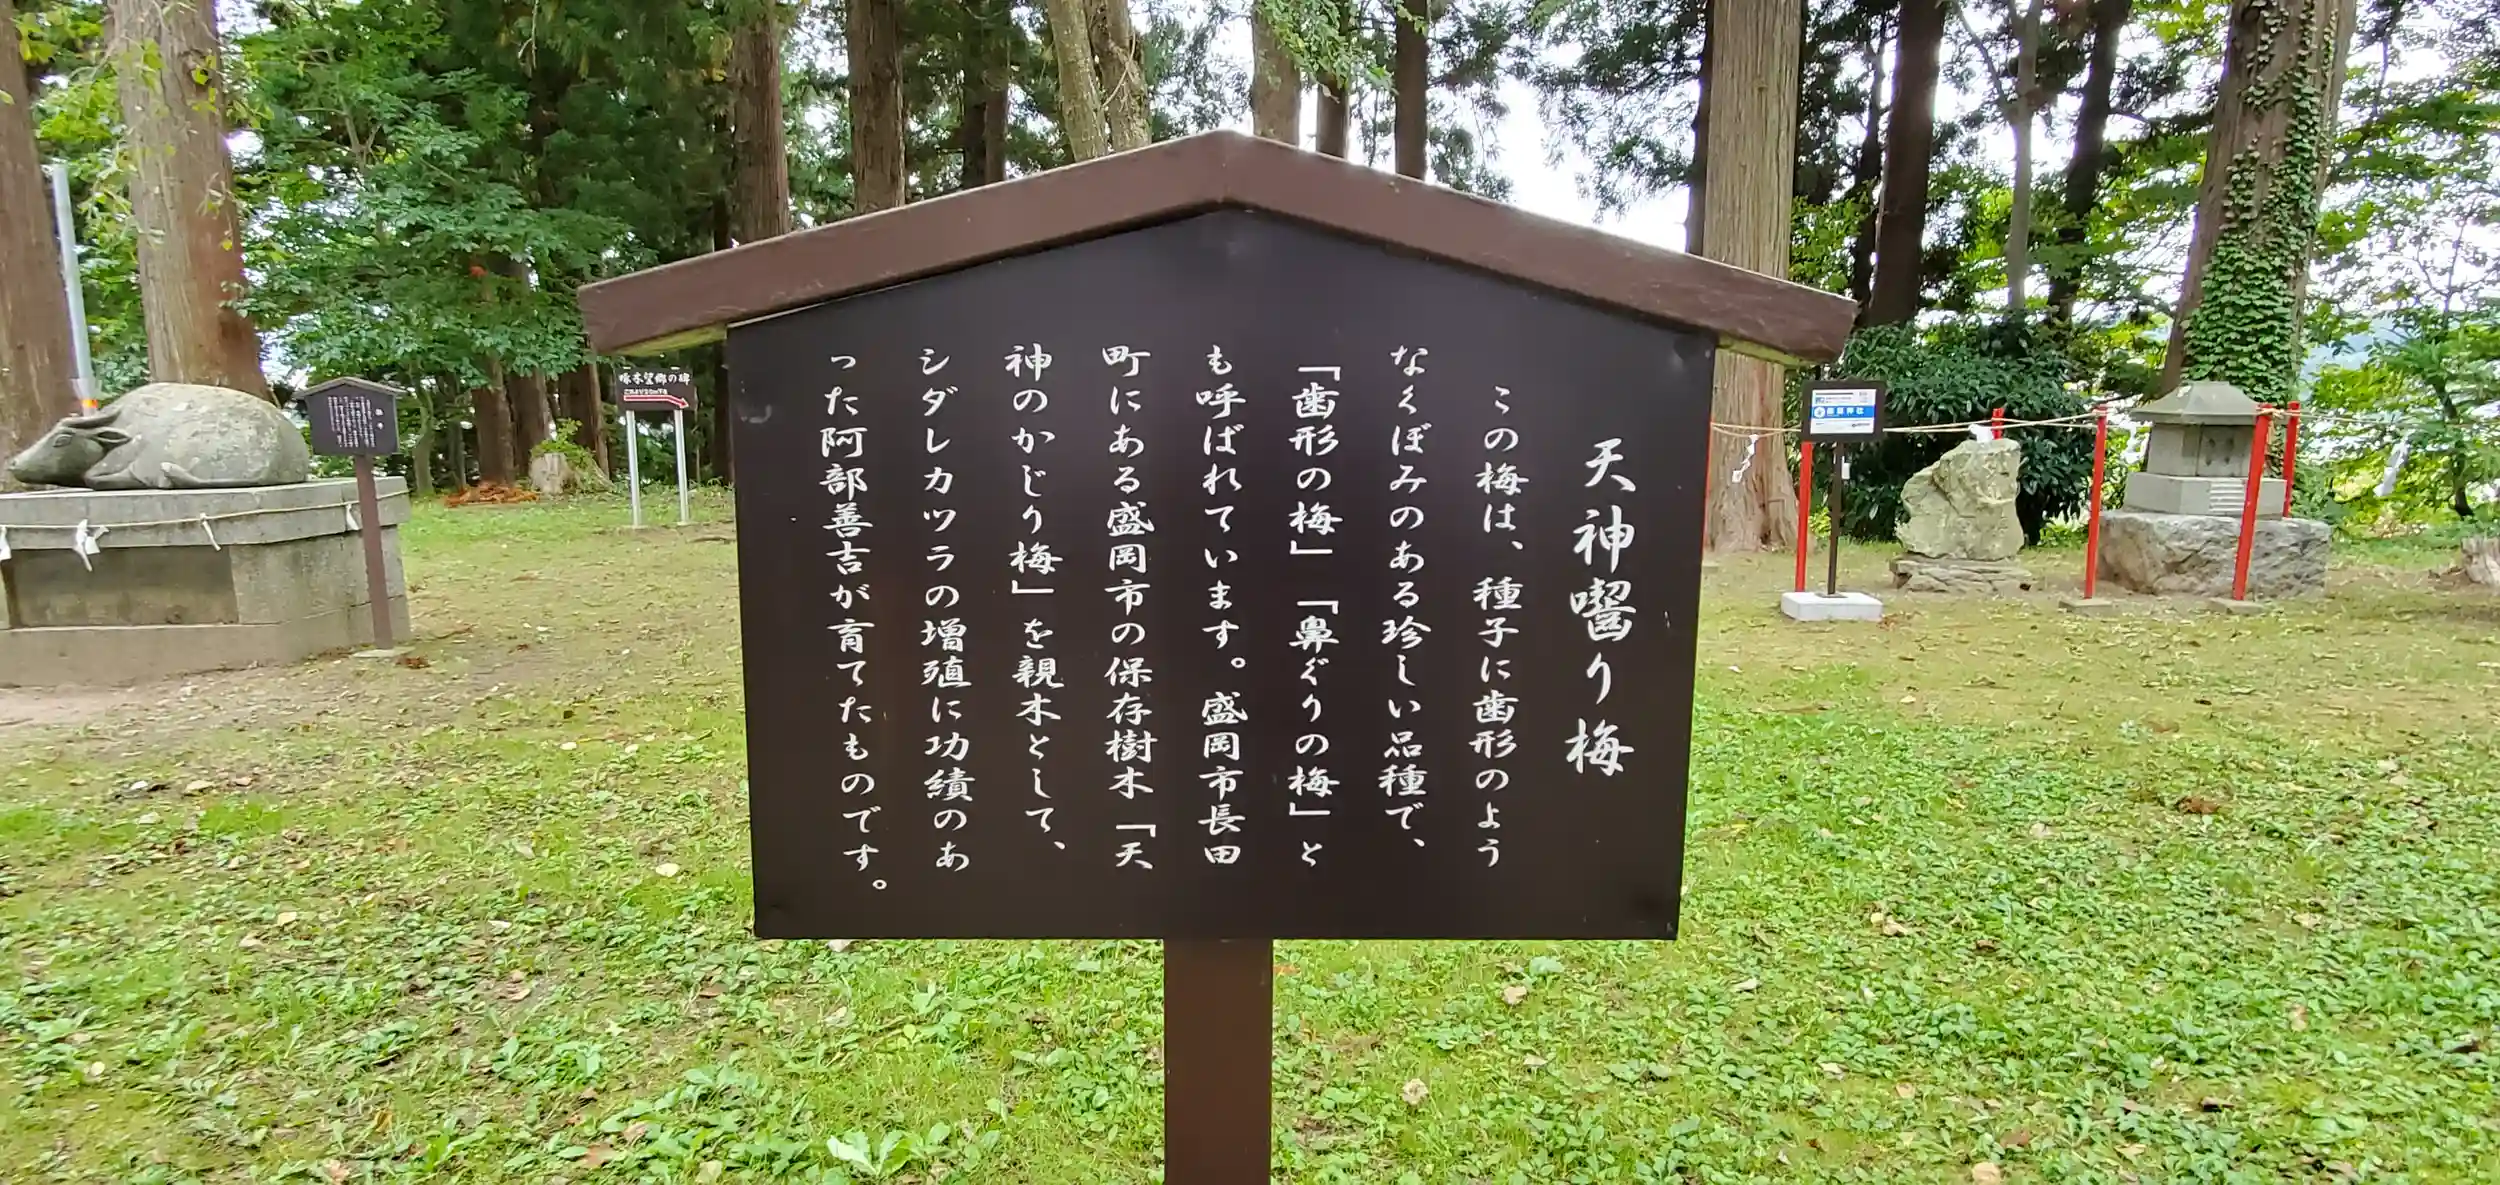 天神囓り梅
この梅は、種子に歯形のよう
なくぼみのある珍しい品種で、
「歯形の梅」「鼻ぐりの梅」と
も呼ばれています。盛岡市長田
町にある盛岡市の保存樹木「天
神のかじり梅」を親木として、
シダレカツラの増殖に功績のあ
った阿部善吉が育てたものです。
啄木望郷の碑